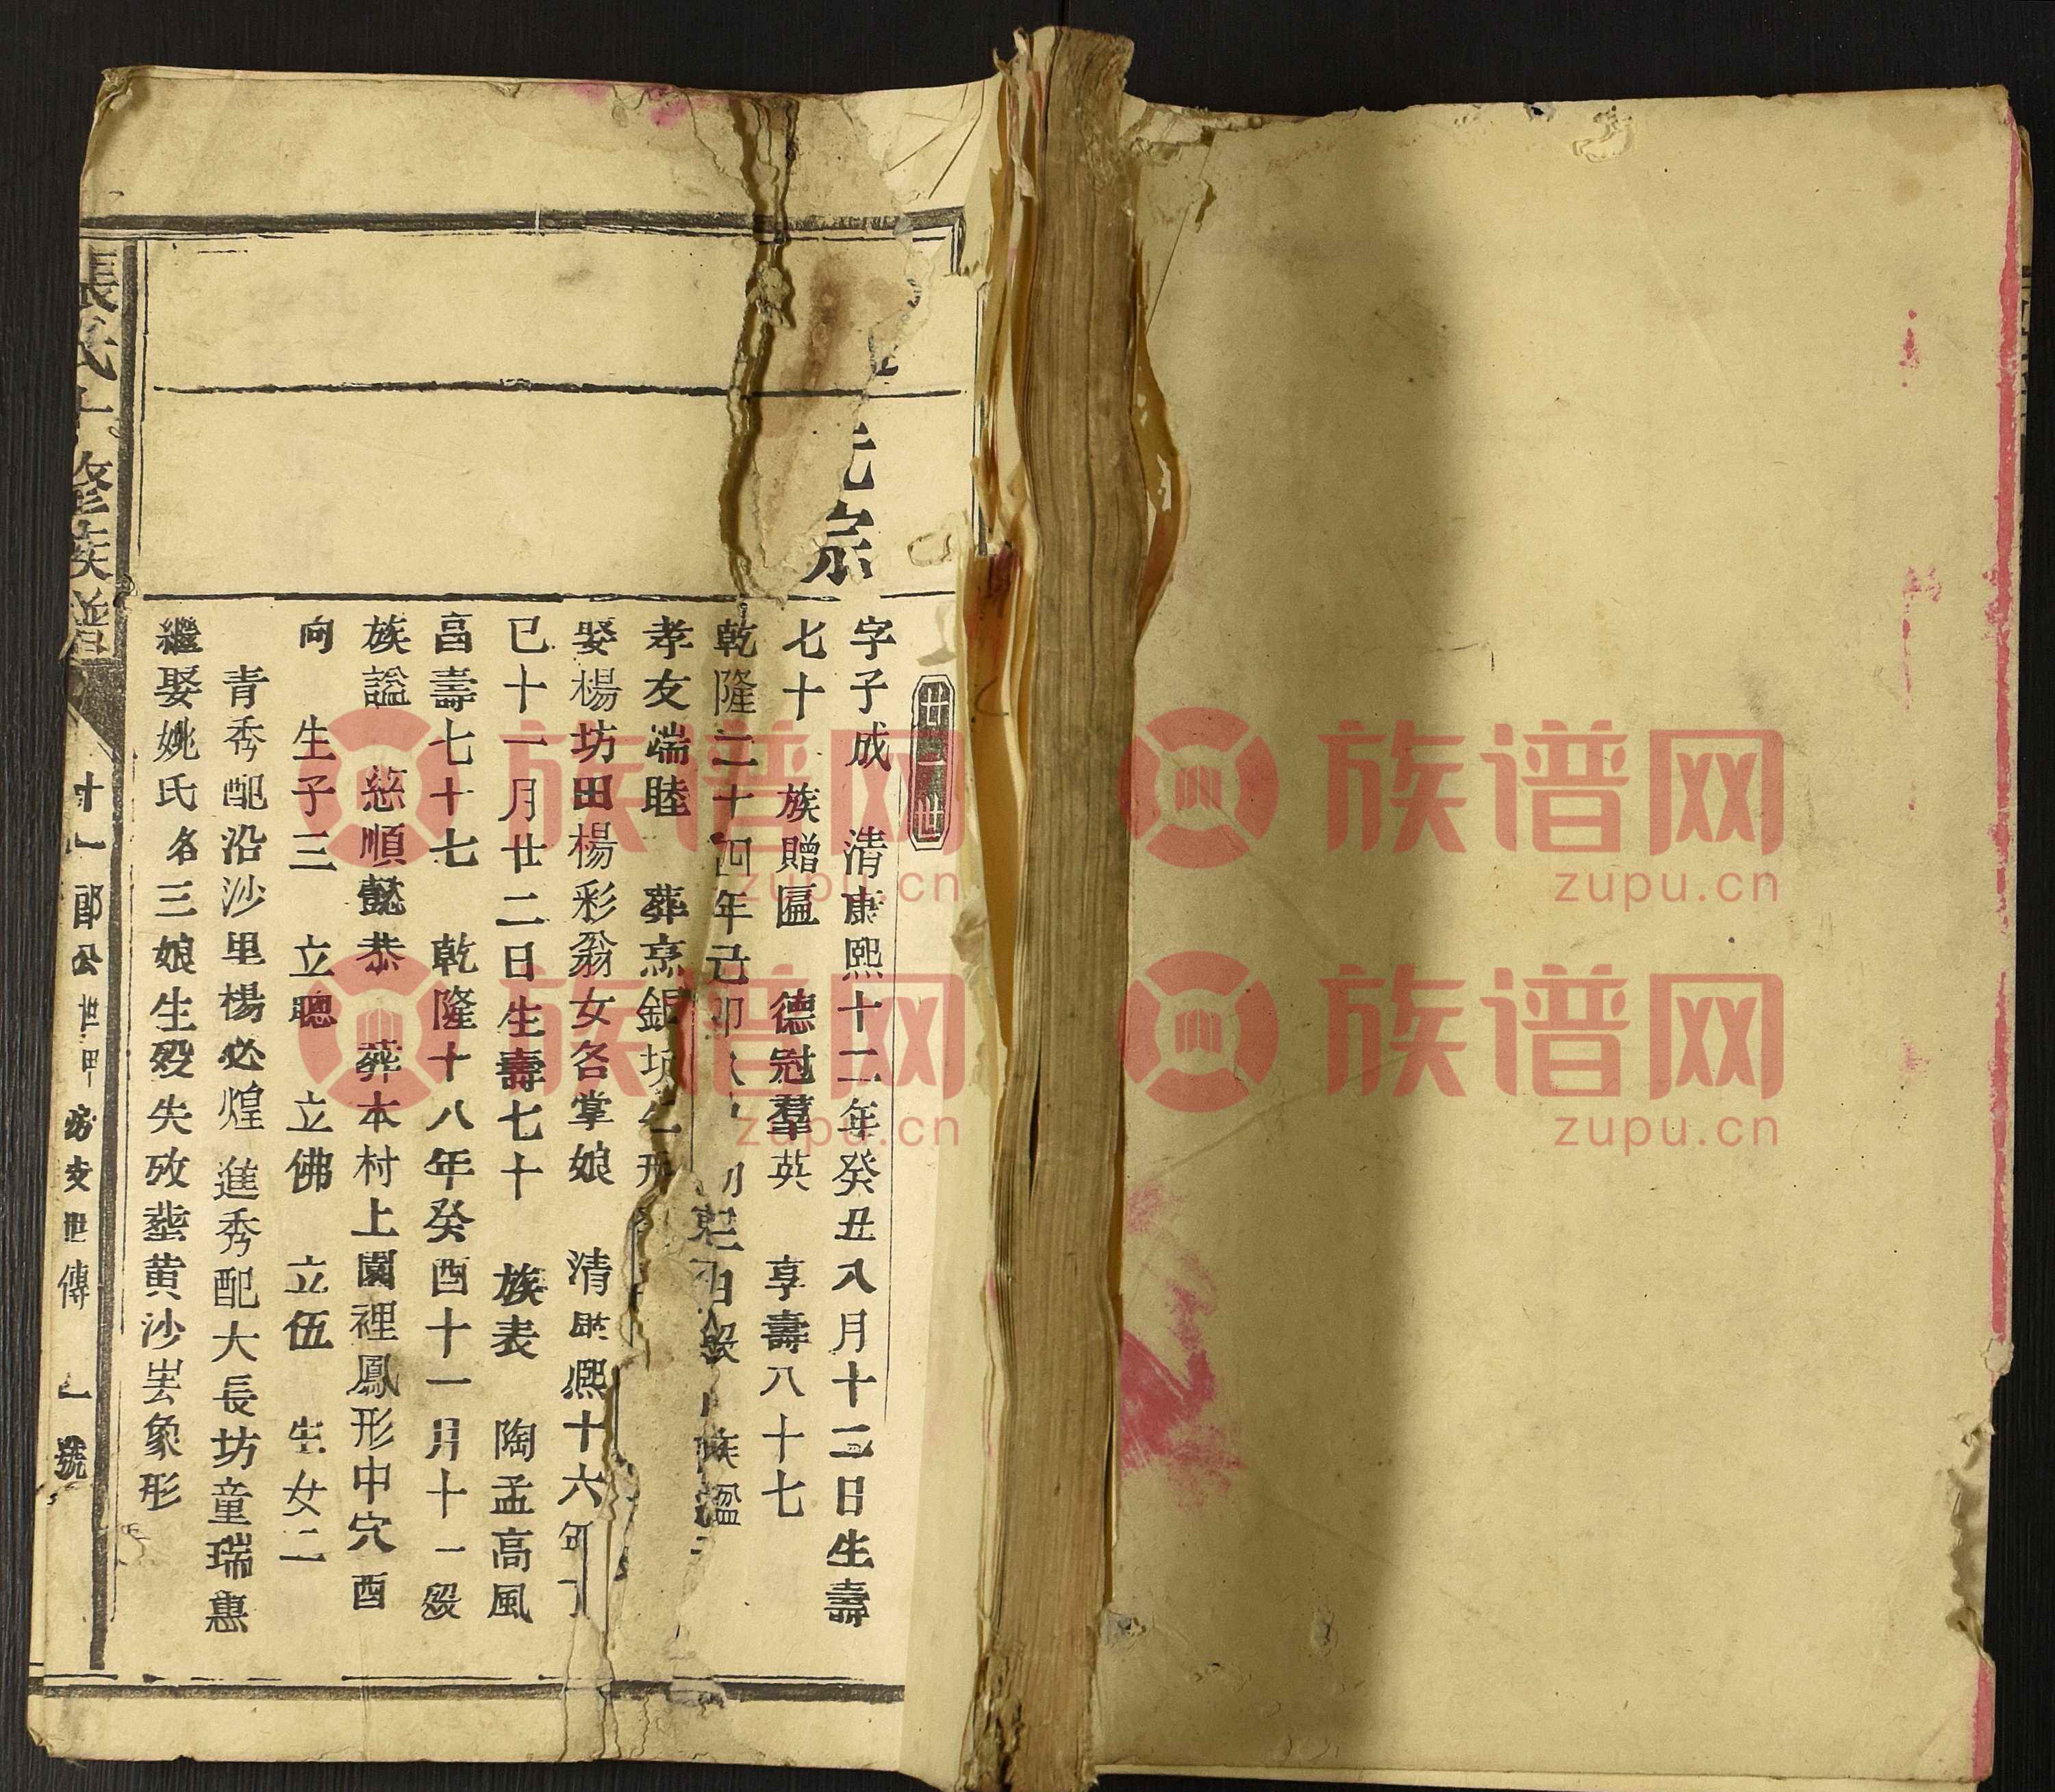 廿二世
宗
字子成 清康熙十二年癸丑八月十二日生壽
七十 族贈匾 德冠羣英 享壽八十七
乾隆二十四年己卯
孝友端睦 葬烹銀坑
娶楊坊田楊彩翁女名掌娘 清康熙十六年丁
巳十一月廿二日生壽七十 族表 陶孟高風
昌壽七十七 乾隆十八年癸酉十一月十一歿
族謚 慈順懿恭 葬本村上園裡鳳形中穴酉
向 生子三 立聰 立佛 立伍 生女二
青秀配沿沙里楊必煌 進秀配大長坊童瑞惠
繼娶姚氏名三娘生歿失攷塟黃沙坣象形
張氏 修族譜
十一郎公 世甲 房支世傳 一號
族谱网
zupu.cn
族谱网
zupu.cn
族谱网
zupu.cn
族谱网
zupu.cn